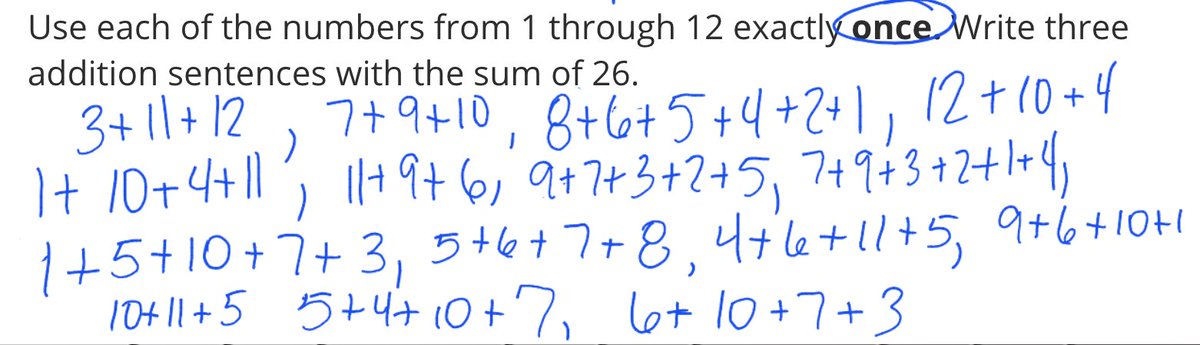 Use each of the numbers from 1 through 12 exactly once. Write three
addition sentences with the sum of 26.
3+11+12, 7+9+10, 8+6+5+4+2+1, 12+10+4
1+10+4+11, 11+9+6, 9+7+3+2+5, 7+9+3+2+1+4,
1+5+10+7+3, 5+6+7+8, 4+6+11+5, 9+6+10+1
10+11+5 5+4+10+7, 6+10+7+3